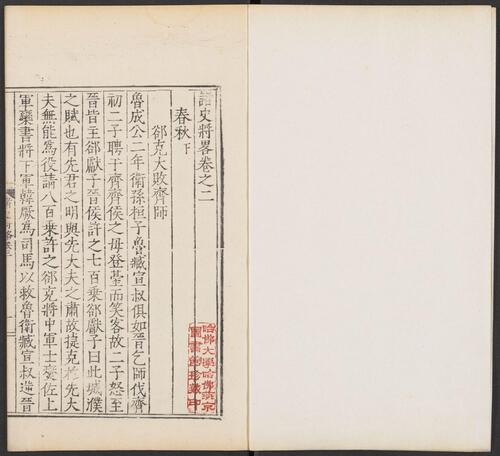 諸史將畧卷之二
春秋下
郤克大敗齊師
魯成公二年衛孫桓子魯臧宣叔俱如晉乞師伐齊
初二子聘于齊齊侯之母登臺而笑客故二子怒至
晉皆主郤獻子晉侯許之七百乗郤獻子曰此城濮
之賦也有先君之明與先大夫之肅故捷克於先大
夫無能為役請八百乗許之郤克將中軍士燮佐上
軍欒書將下軍韓厥為司馬以救魯衛臧宣叔逆晉
哈佛大學哈佛燕京
圖書館珍藏印